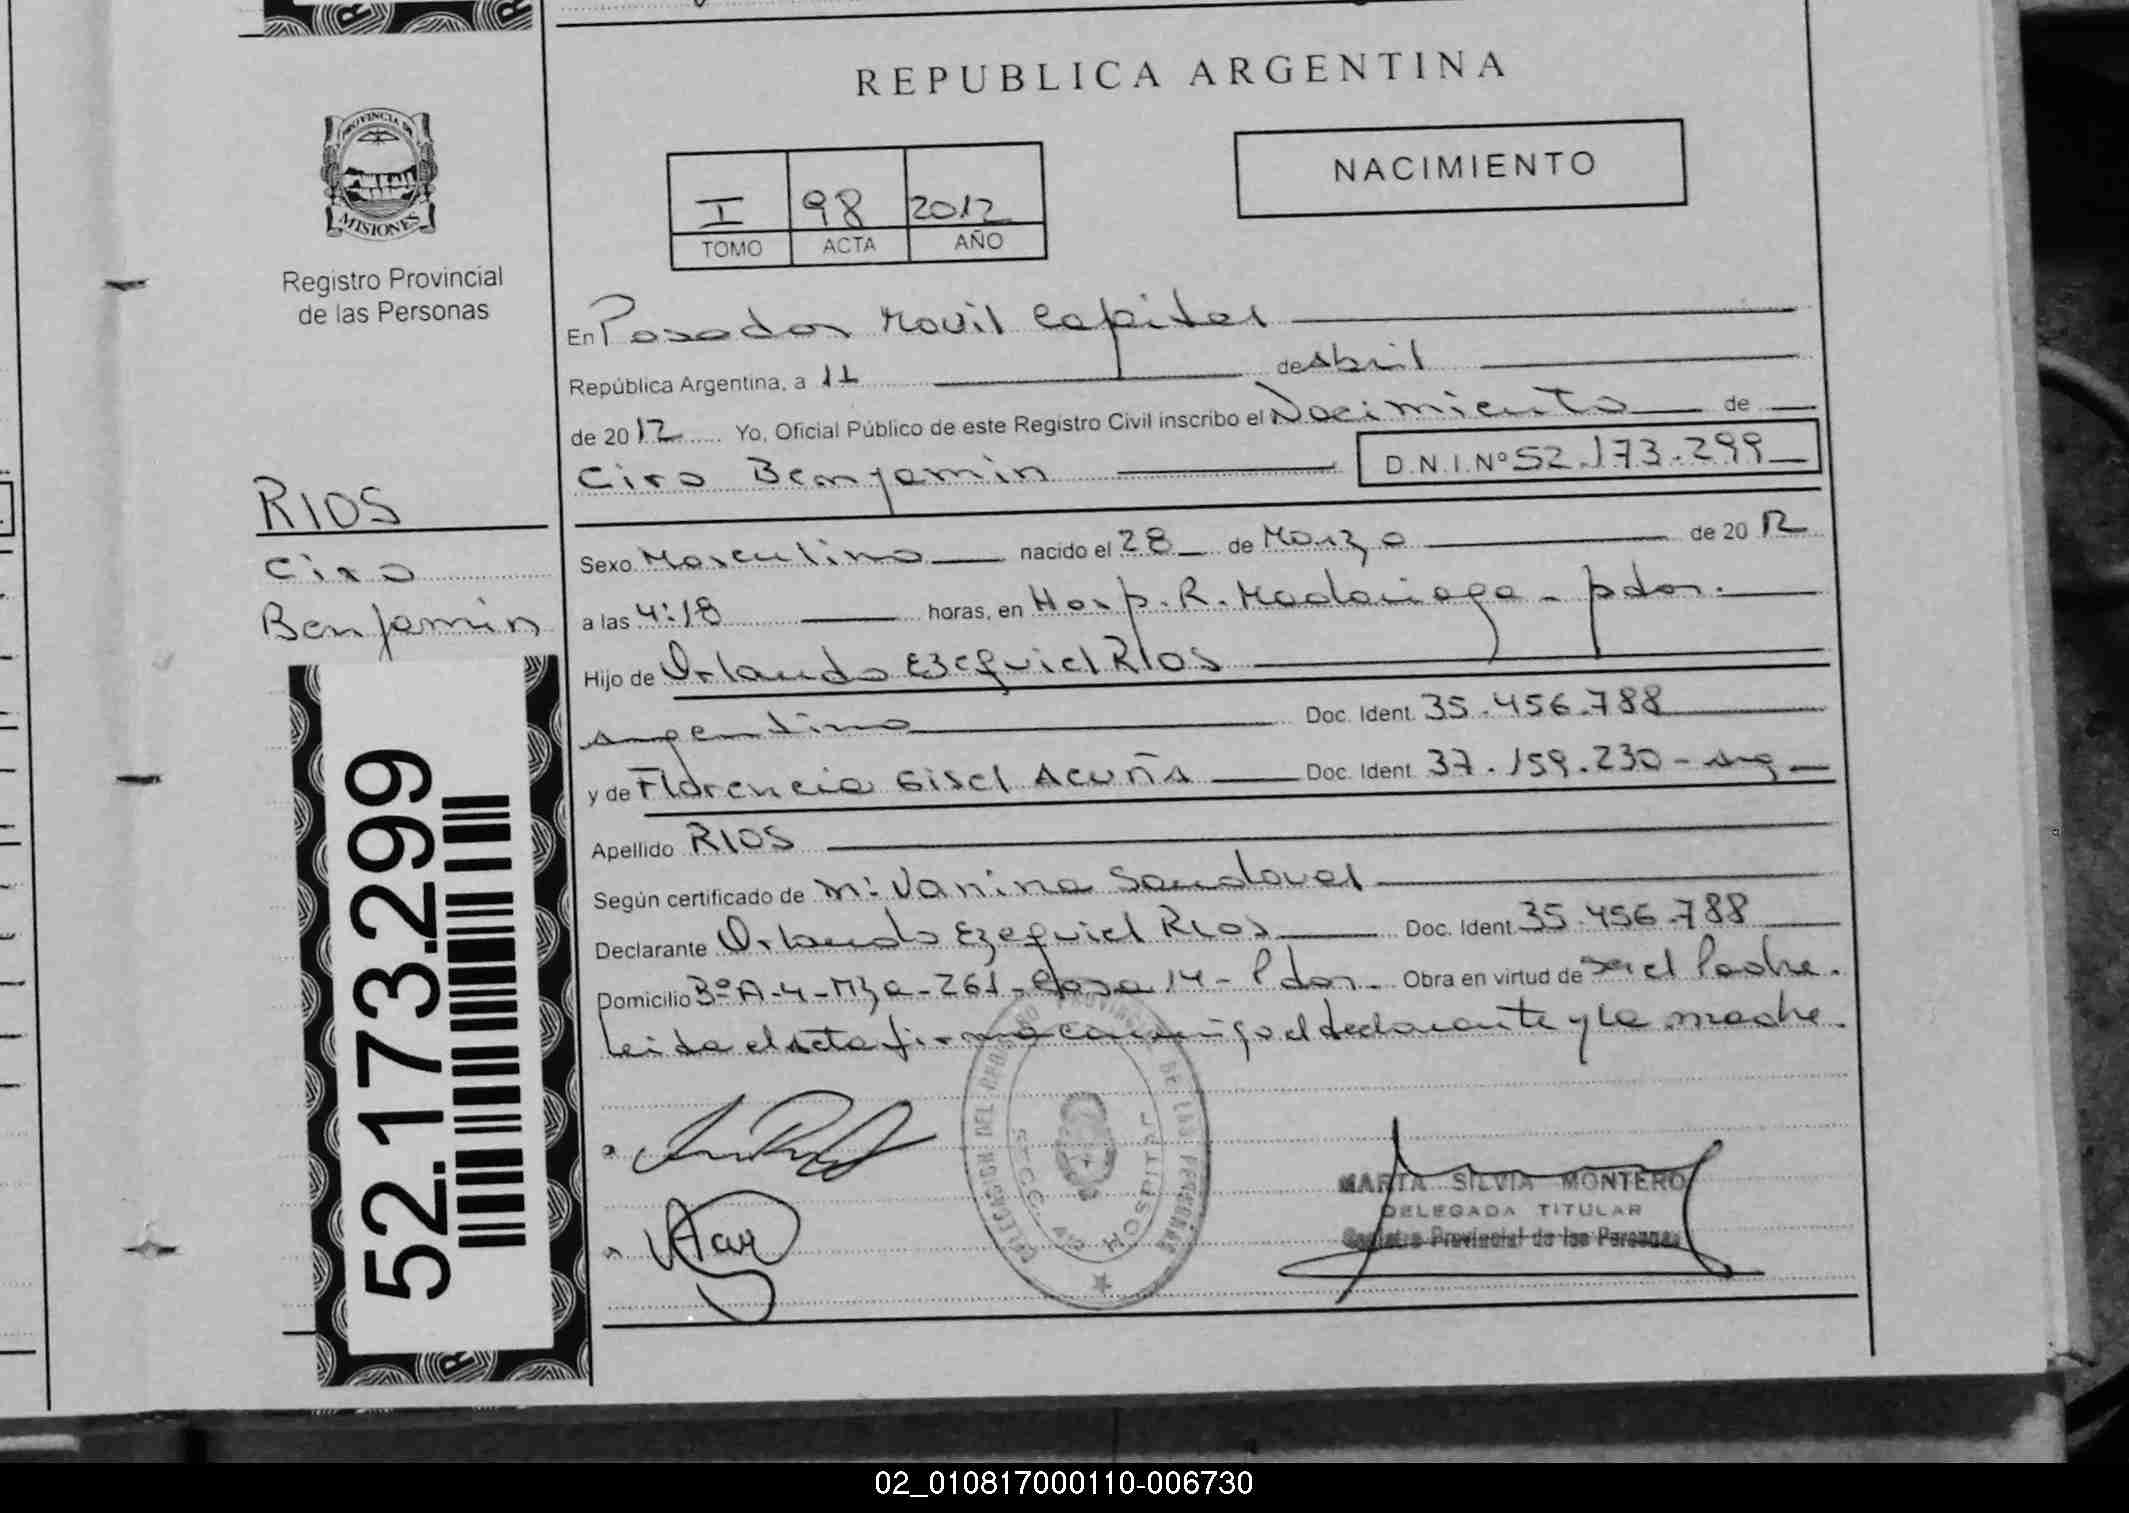 REPUBLICA ARGENTINA
PROVINCIA DE
MISIONES
Registro Provincial
de las Personas
NACIMIENTO
I 98 2012
TOMO ACTA AÑO
En Posadas Movil Capital
República Argentina, a 11 de Abril
de 2012 Yo, Oficial Público de este Registro Civil inscribo el Nacimiento de
Ciro Benjamin D.N.I.Nº 52.173.299
RIOS
Ciro
Benjamin
Sexo Masculino nacido el 28 de Marzo de 2012
a las 4:18 horas, en Hosp. R. Madariaga - pdas.
Hijo de Orlando Ezequiel RIOS
Argentino Doc. Ident. 35.456.788
y de Florencia Gisel Acuña Doc. Ident. 37.159.230 - Arg
Apellido RIOS
Según certificado de Mª Vanina Sandoval
Declarante Orlando Ezequiel Rios Doc. Ident. 35.456.788
Domicilio Bº A-4-Mza-261-Casa 14 - Pdas. Obra en virtud de ser el Padre.
Leida el acta firma conmigo el declarante y la madre.
52.173.299
DELEGACION DEL REGISTRO PROVINCIAL DE LAS PERSONAS
HOSPITAL
MARTA SILVIA MONTERO
DELEGADA TITULAR
Registro Provincial de las Personas
02_010817000110-006730